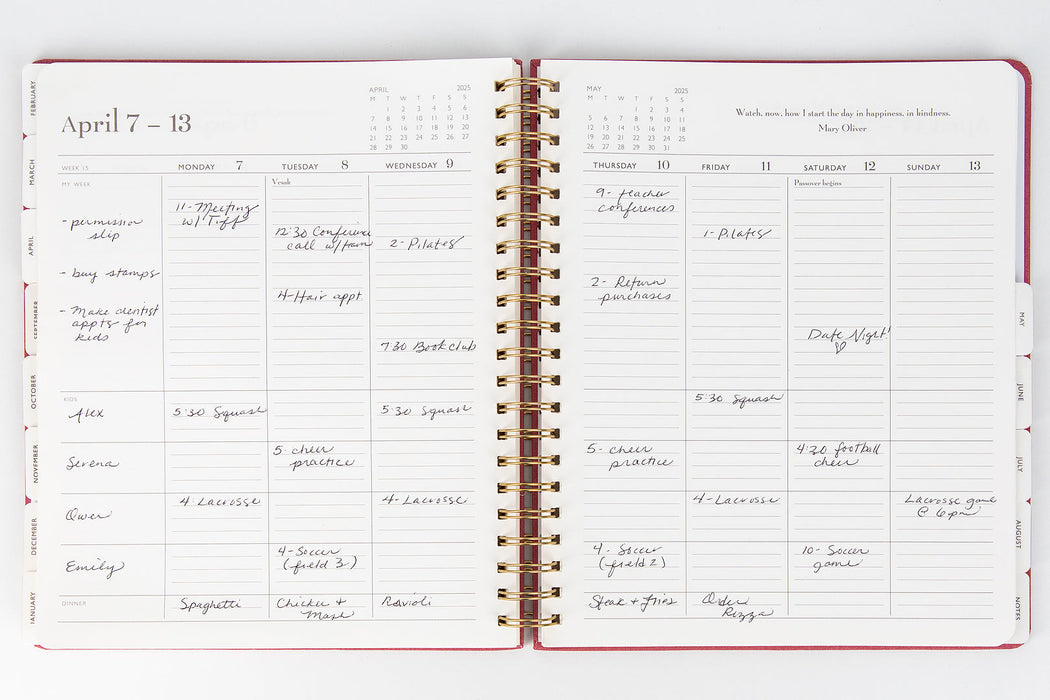 April 7 – 13
APRIL 2025
M T W T F S S
1 2 3 4 5 6
7 8 9 10 11 12 13
14 15 16 17 18 19 20
21 22 23 24 25 26 27
28 29 30
WEEK 15
MONDAY 7
TUESDAY 8
WEDNESDAY 9
MY WEEK
- permission
slip
- buy stamps
- Make dentist
appts for
kids
11- Meeting
w/ Tiff
Vesak
12:30 Conference
call w/team
4-Hair appt.
2- Pilates
7:30 Book club
KIDS
Alex
5:30 Squash
5:30 Squash
Serena
5- cheer
practice
Owen
4: Lacrosse
4- Lacrosse
Emily
4- Soccer
(field 3)
DINNER
Spaghetti
Chicken +
Mash
Ravioli
MAY 2025
M T W T F S S
1 2 3 4
5 6 7 8 9 10 11
12 13 14 15 16 17 18
19 20 21 22 23 24 25
26 27 28 29 30 31
Watch, now, how I start the day in happiness, in kindness.
Mary Oliver
THURSDAY 10
FRIDAY 11
SATURDAY 12
SUNDAY 13
9- teacher
conferences
2- Return
purchases
1- Pilates
Passover begins
Date Night!
5:30 Squash
5- cheer
practice
4:30 football
cheer
4- Lacrosse
Lacrosse game
@ 6pm
4- Soccer
(field 2)
10- Soccer
game
Steak + fries
Order
Pizza
FEBRUARY
MARCH
APRIL
SEPTEMBER
OCTOBER
NOVEMBER
DECEMBER
JANUARY
MAY
JUNE
JULY
AUGUST
NOTES